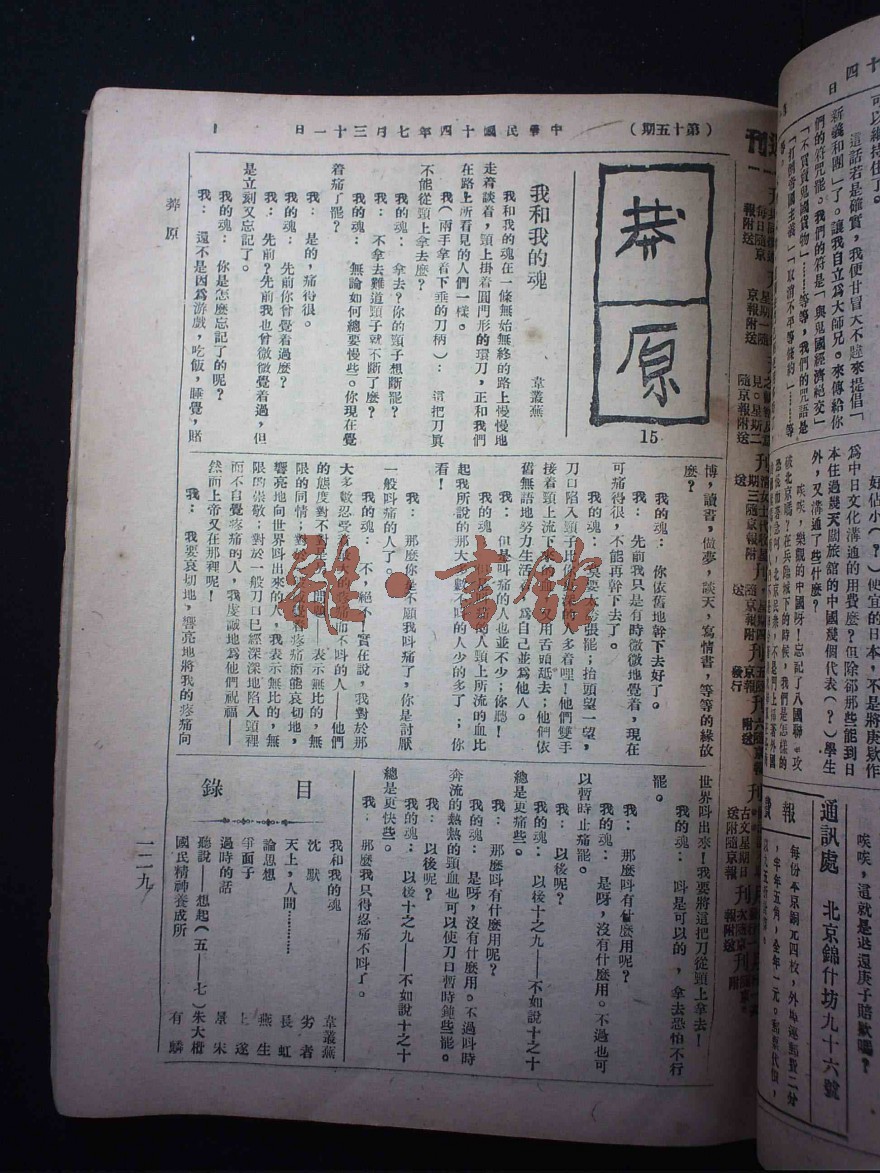 （第十五期）
中華民國十四年七月三十一日
1
莽原
15
我和我的魂
韋叢蕪
我和我的魂在一條無始無終的路上慢慢地
走着談着，頸上掛着圓門形的環刀，正和我們
在路上所看見的人們一樣。
我（兩手拿着下垂的刀柄）：這把刀眞
不能從頸上拿去麼？
我的魂：拿去？你的頸子想斷罷？
我：不拿去難道頸子就不斷了麼？
我的魂：無論如何總要慢些。你現在覺
着痛了罷？
我：是的，痛得很。
我的魂：先前你曾覺着過麼？
我：先前？先前我也曾微微覺着過，但
是立刻又忘記了。
我的魂：你是怎麽忘記了的呢？
我：還不是因爲游戲，吃飯，睡覺，賭
莽原
博，讀書，做夢，談天，寫情書，等等的緣故
麽？
我的魂：你依舊地幹下去好了。
我：先前我只是有時微微地覺着，現在
可痛得很，不能再幹下去了。
我的魂：莫要太夸張罷；抬頭望一望，
刀口陷入頸子比你更深的人多着哩！他們雙手
接着頸上流下來的血，又用舌頭舐去；他們依
舊無語地努力生活去，爲自己並爲他人。
我：但是叫痛的人也並不少；你聽！
我的魂：但是叫痛的人頸上所流的血比
起我所說的那大多數不叫的人少的多了；你
看！
我：那麼你是不願我叫痛了，你是討厭
一般叫痛的人了。
我的魂：不，絕不！實在說，我對於那
大多數忍受着極大的疼痛而不叫的人——他們
的態度對不對是另一問題——表示無比的，無
限的同情；對於疼痛而能哀切地，
響亮地向世界叫出來的人，我表示無比的，無
限的崇敬；對於一般刀口已經深深地陷入頸裡
而不自覺疼痛的人，我虔誠地爲他們祝福——
然而上帝又在那裡呢！
我：我要哀切地，響亮地將我的疼痛向
世界叫出來！我要將這把刀從頸上拿去！
我的魂：叫是可以的，拿去恐怕不行
罷。
我：那麼叫有什麼用呢？
我的魂：是呀，沒有什麼用。不過也可
以暫時止痛罷。
我：以後呢？
我的魂：以後十之九——不如說十之十
總是更痛些。
我：那麼叫有什麼用呢？
我的魂：是呀，沒有什麼用。不過叫時
奔流的熱熱的頸血也可以使刀口暫時鈍些罷。
我：以後呢？
我的魂：以後十之九——不如說十之十
總是更快些。
我：那麼我只得忍痛不叫了。
目錄
我和我的魂 韋叢蕪
沈默 劣者
天上，人間………… 長虹
論思想 燕生
爭面子 上遂
過時的話 景宋
聽說——想起（五——七） 朱大枬
國民精神養成所 有麟
一二九
可以維持住了。
這話若是確實，我便甘冒天不韙來提倡「
新義和團」了。讓我自立爲大師兄。來傳給你
們的符咒罷。我們的符是「與鬼國經濟絕交」
「不買賣鬼國貨物」……等等，我們的咒語是
「打倒帝國主義」「取消不平等條約」……等
便宜的日本，不是將庚欵作
爲中日文化溝通的用費麼？但除卻那些能到日
本住過幾天闊旅館的中國幾個代表（？）學生
外，又溝通了些什麼？
唉唉，樂觀的中國呀！忘記了八國聯軍攻
破北京嗎？在兵臨城下的時候，我們是怎樣的
唉唉，這就是退還庚子賠款嗎？
通訊處 北京錦什坊九十六號
報價
每份本京銅元四枚，外埠連郵費二分
，半年五角，全年一元。郵票代價，
雒·書館